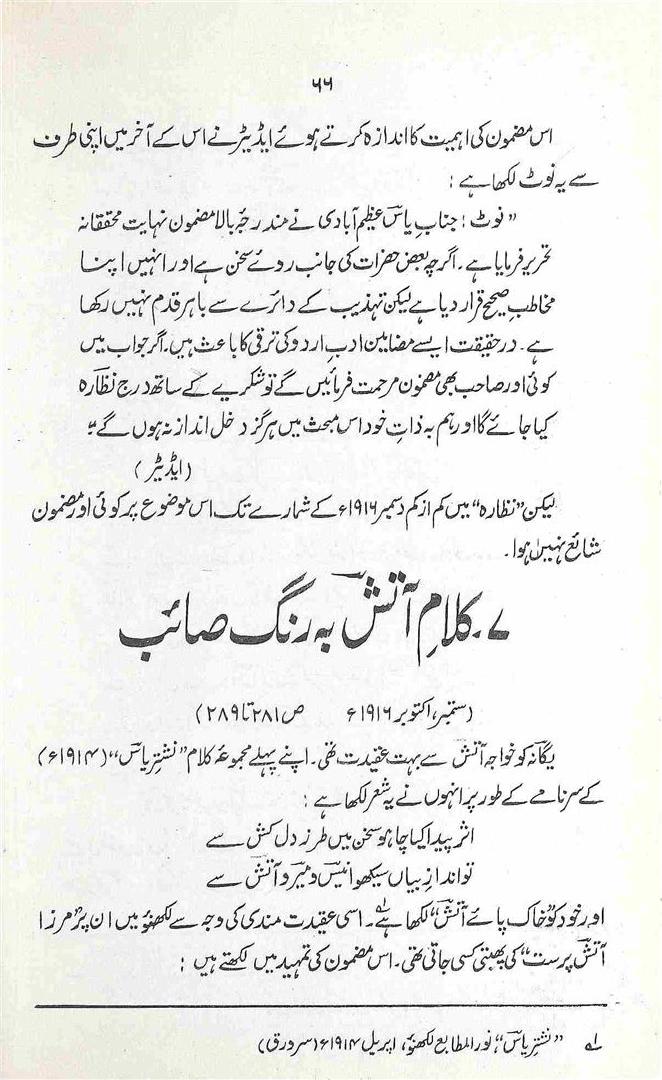 ۶۶
اس مضمون کی اہمیت کا اندازہ کرتے ہوئے ایڈیٹر نے اس کے آخر میں اپنی طرف
سے یہ نوٹ لکھا ہے :
”نوٹ : جنابِ یاسؔ عظیم آبادی نے مندرجۂ بالا مضمون نہایت محققانہ
تحریر فرمایا ہے۔ اگرچہ بعض حضرات کی جانب روئے سخن ہے اور انہیں اپنا
مخاطبِ صحیح قرار دیا ہے لیکن تہذیب کے دائرے سے باہر قدم نہیں رکھا
ہے۔ درحقیقت ایسے مضامین ادبِ اردو کی ترقی کا باعث ہیں۔ اگر جواب میں
کوئی اور صاحب بھی مضمون مرحمت فرمائیں گے تو شکریے کے ساتھ درجِ نظارہ
کیا جائے گا اور ہم بہ ذاتِ خود اس مبحث میں ہرگز دخل انداز نہ ہوں گے“
(ایڈیٹر)
لیکن ”نظارہ“ میں کم از کم دسمبر ۱۹۱۶ء کے شمارے تک اس موضوع پر کوئی اور مضمون
شائع نہیں ہوا۔
۷۔ کلامِ آتشؔ بہ رنگِ صائبؔ
(ستمبر، اکتوبر ۱۹۱۶ء ص ۲۸۱ تا ۲۸۹)
یگانہ کو خواجہ آتشؔ سے بہت عقیدت تھی۔ اپنے پہلے مجموعۂ کلام ”نشترِ یاسؔ“ (۱۹۱۴ء)
کے سرنامے کے طور پر انہوں نے یہ شعر لکھا ہے :
اثر پیدا کیا چاہو سخن میں طرزِ دل کش سے
تو اندازِ بیاں سیکھو انیسؔ و میرؔ و آتشؔ سے
اور خود کو ”خاک پائے آتشؔ“ لکھا ہے۱؎۔ اسی عقیدت مندی کی وجہ سے لکھنؤ میں ان پر ”مرزا
آتشؔ پرست“ کی پھبتی کسی جاتی تھی۔ اس مضمون کی تمہید میں لکھتے ہیں :
۱؎ ”نشترِ یاسؔ“، نور المطابع لکھنؤ، اپریل ۱۹۱۴ء (سرورق)